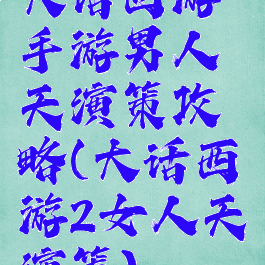 大话西游
手游男人
天演策攻
略(大话西
游2女人天
演策)